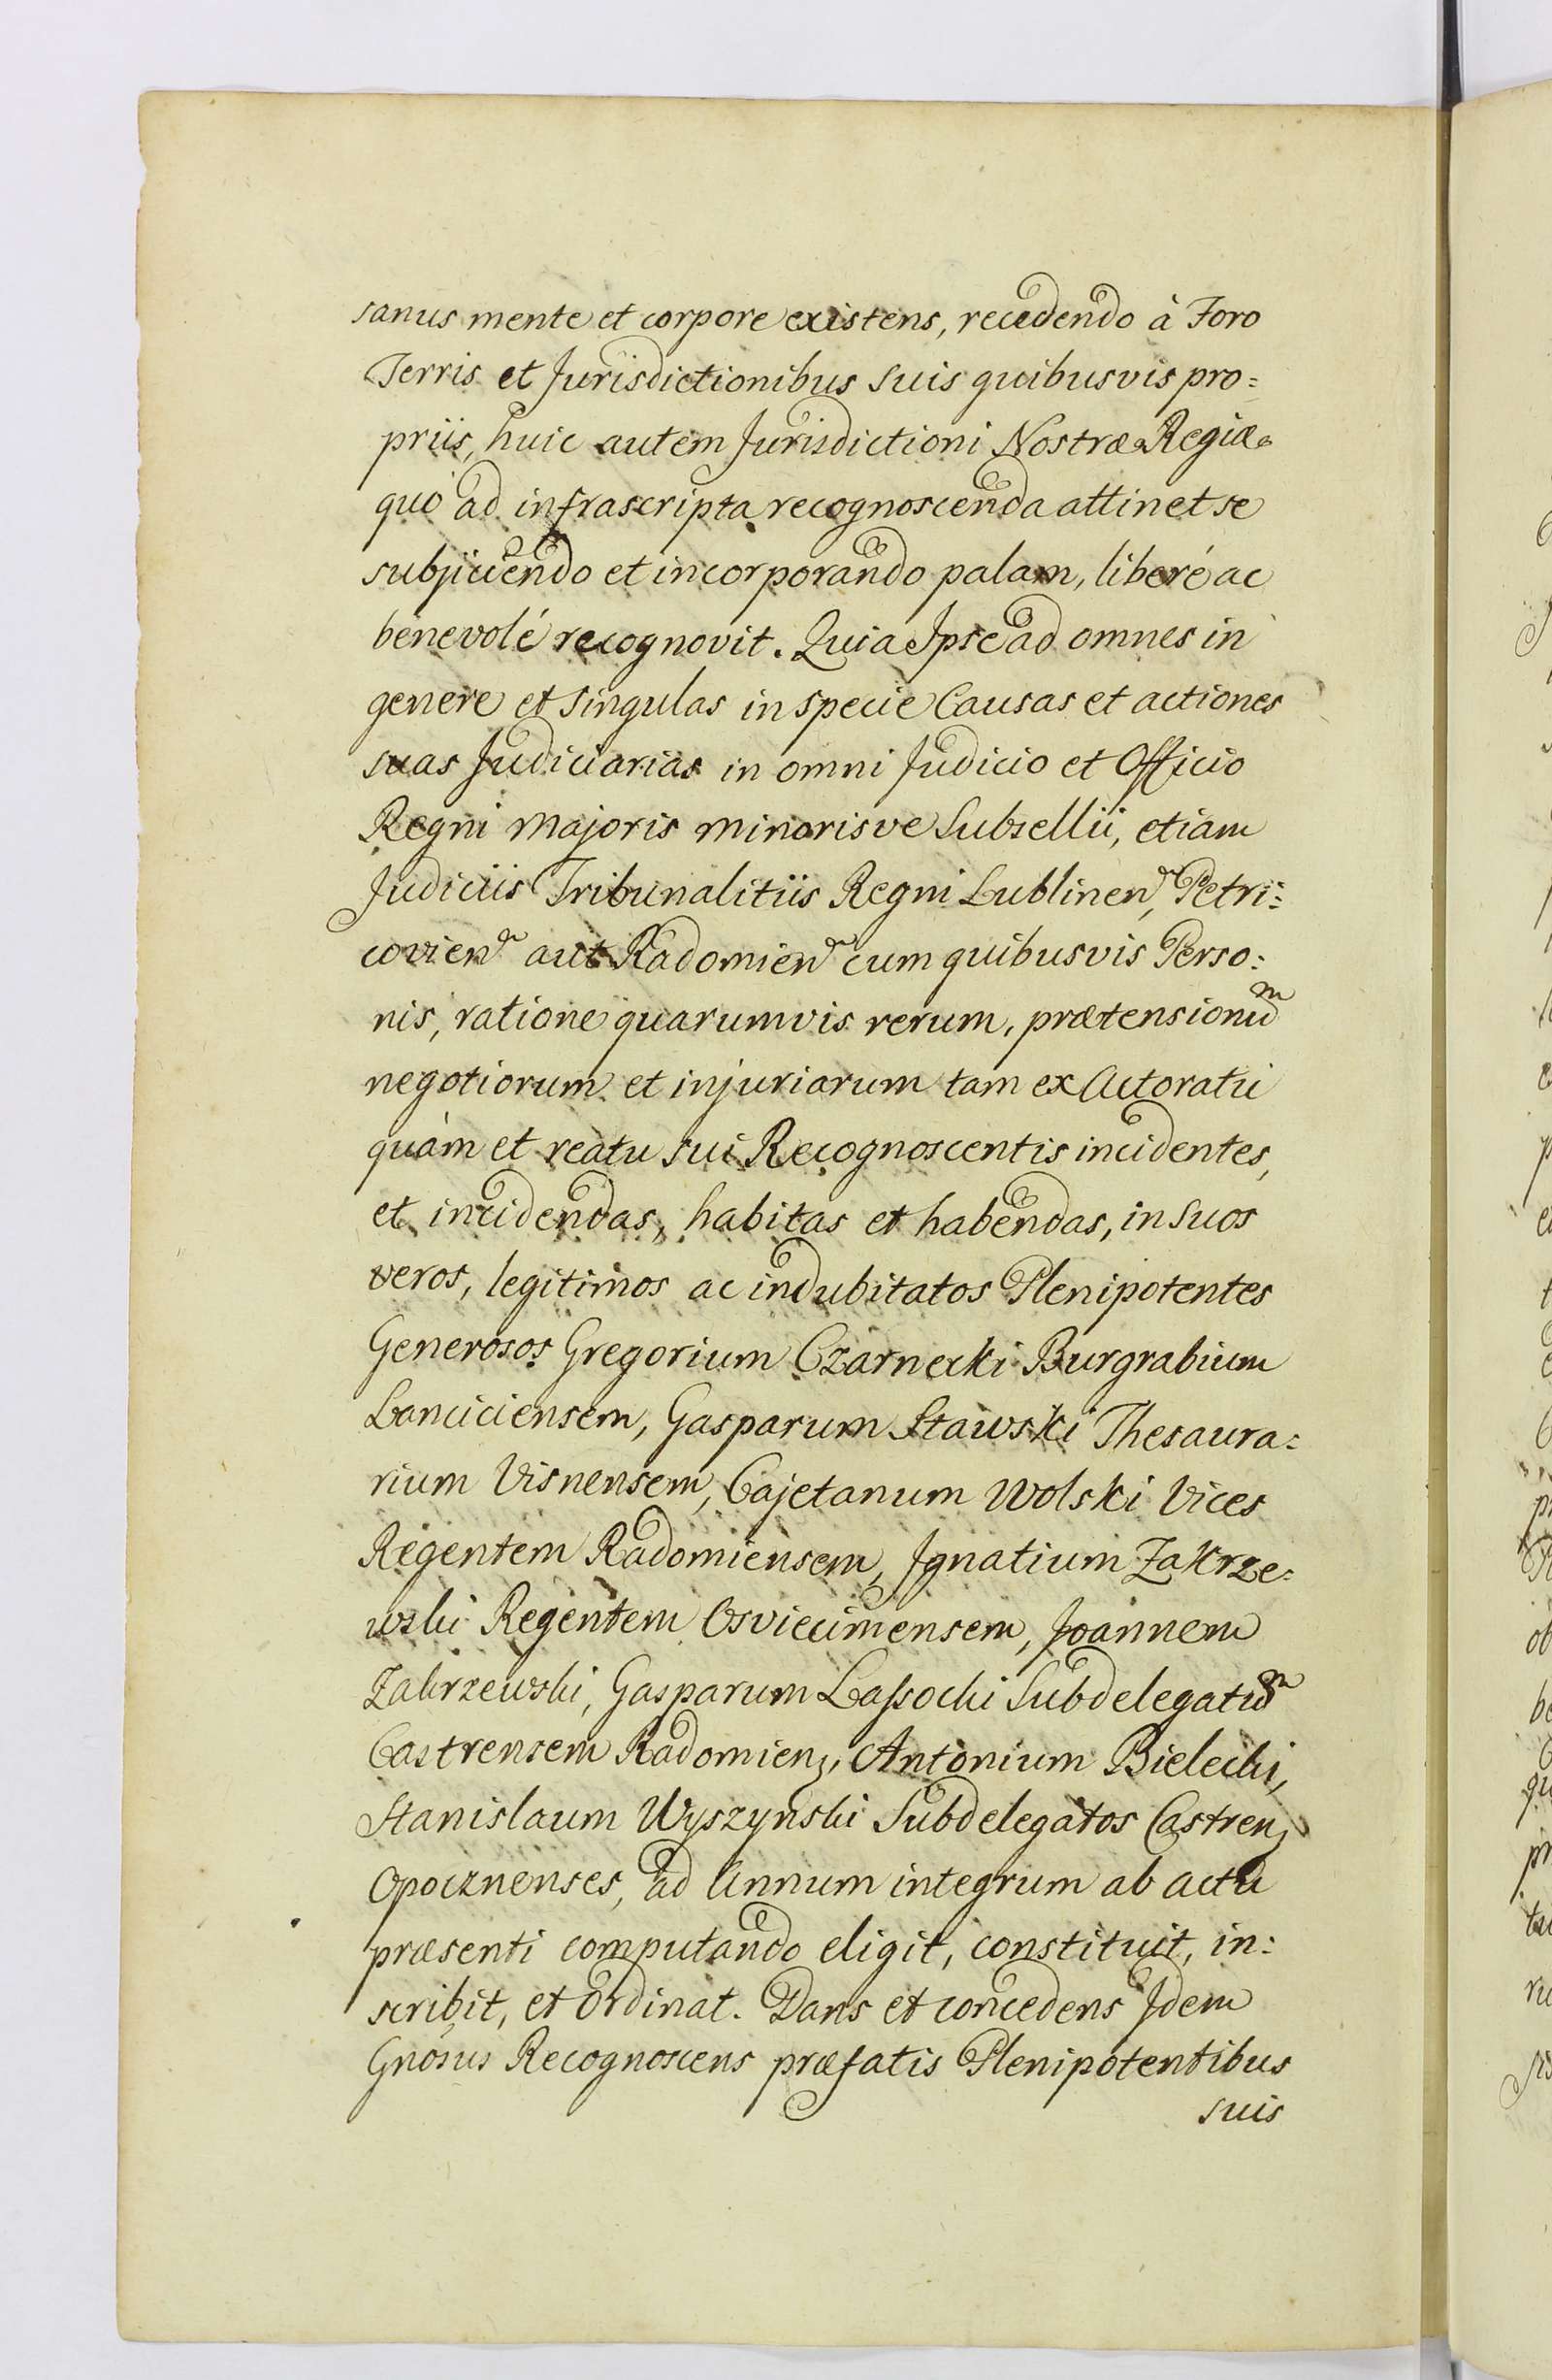 sanus mente et corpore existens, recedendo à Foro
Terris et Jurisdictionibus suis quibusvis pro=
priis, huic autem Jurisdictioni Nostræ Regiæ
quò ad infrascripta recognoscenda attinet se
subjiciendo et incorporando palam, liberé ac
benevolé recognovit. Quia Ipse ad omnes in
genere et singulas in specie Causas et actiones
suas Judiciarias in omni Judicio et Officio
Regni Majoris minorisve Subsellii, etiam
Judiciis Tribunalitiis Regni Lublinen, Petri=
covien aut Radomien cum quibusvis Perso=
nis, ratione quarumvis rerum, prætensionum
negotiorum et injuriarum tam ex Actoratu
quàm et reatu sui Recognoscentis incidentes,
et incidendas, habitas et habendas, in suos
veros, legitimos ac indubitatos Plenipotentes
Generosos Gregorium Czarnecki Burgrabium
Lanciciensem, Gasparum Stawski Thesaura=
rium Visnensem, Cajetanum Wolski Vices
Regentem Radomiensem, Ignatium Zakrze=
wski Regentem Osviecimensem, Joannem
Zakrzewski, Gasparum Lassocki Subdelegatum
Castrensem Radomien, Antonium Bielecki,
Stanislaum Wyszynski Subdelegatos Castren
Opocznenses, ad Annum integrum ab actu
præsenti computando eligit, constituit, in=
scribit, et ordinat. Dans et concedens Idem
Gnosus Recognoscens præfatis Plenipotentibus
suis